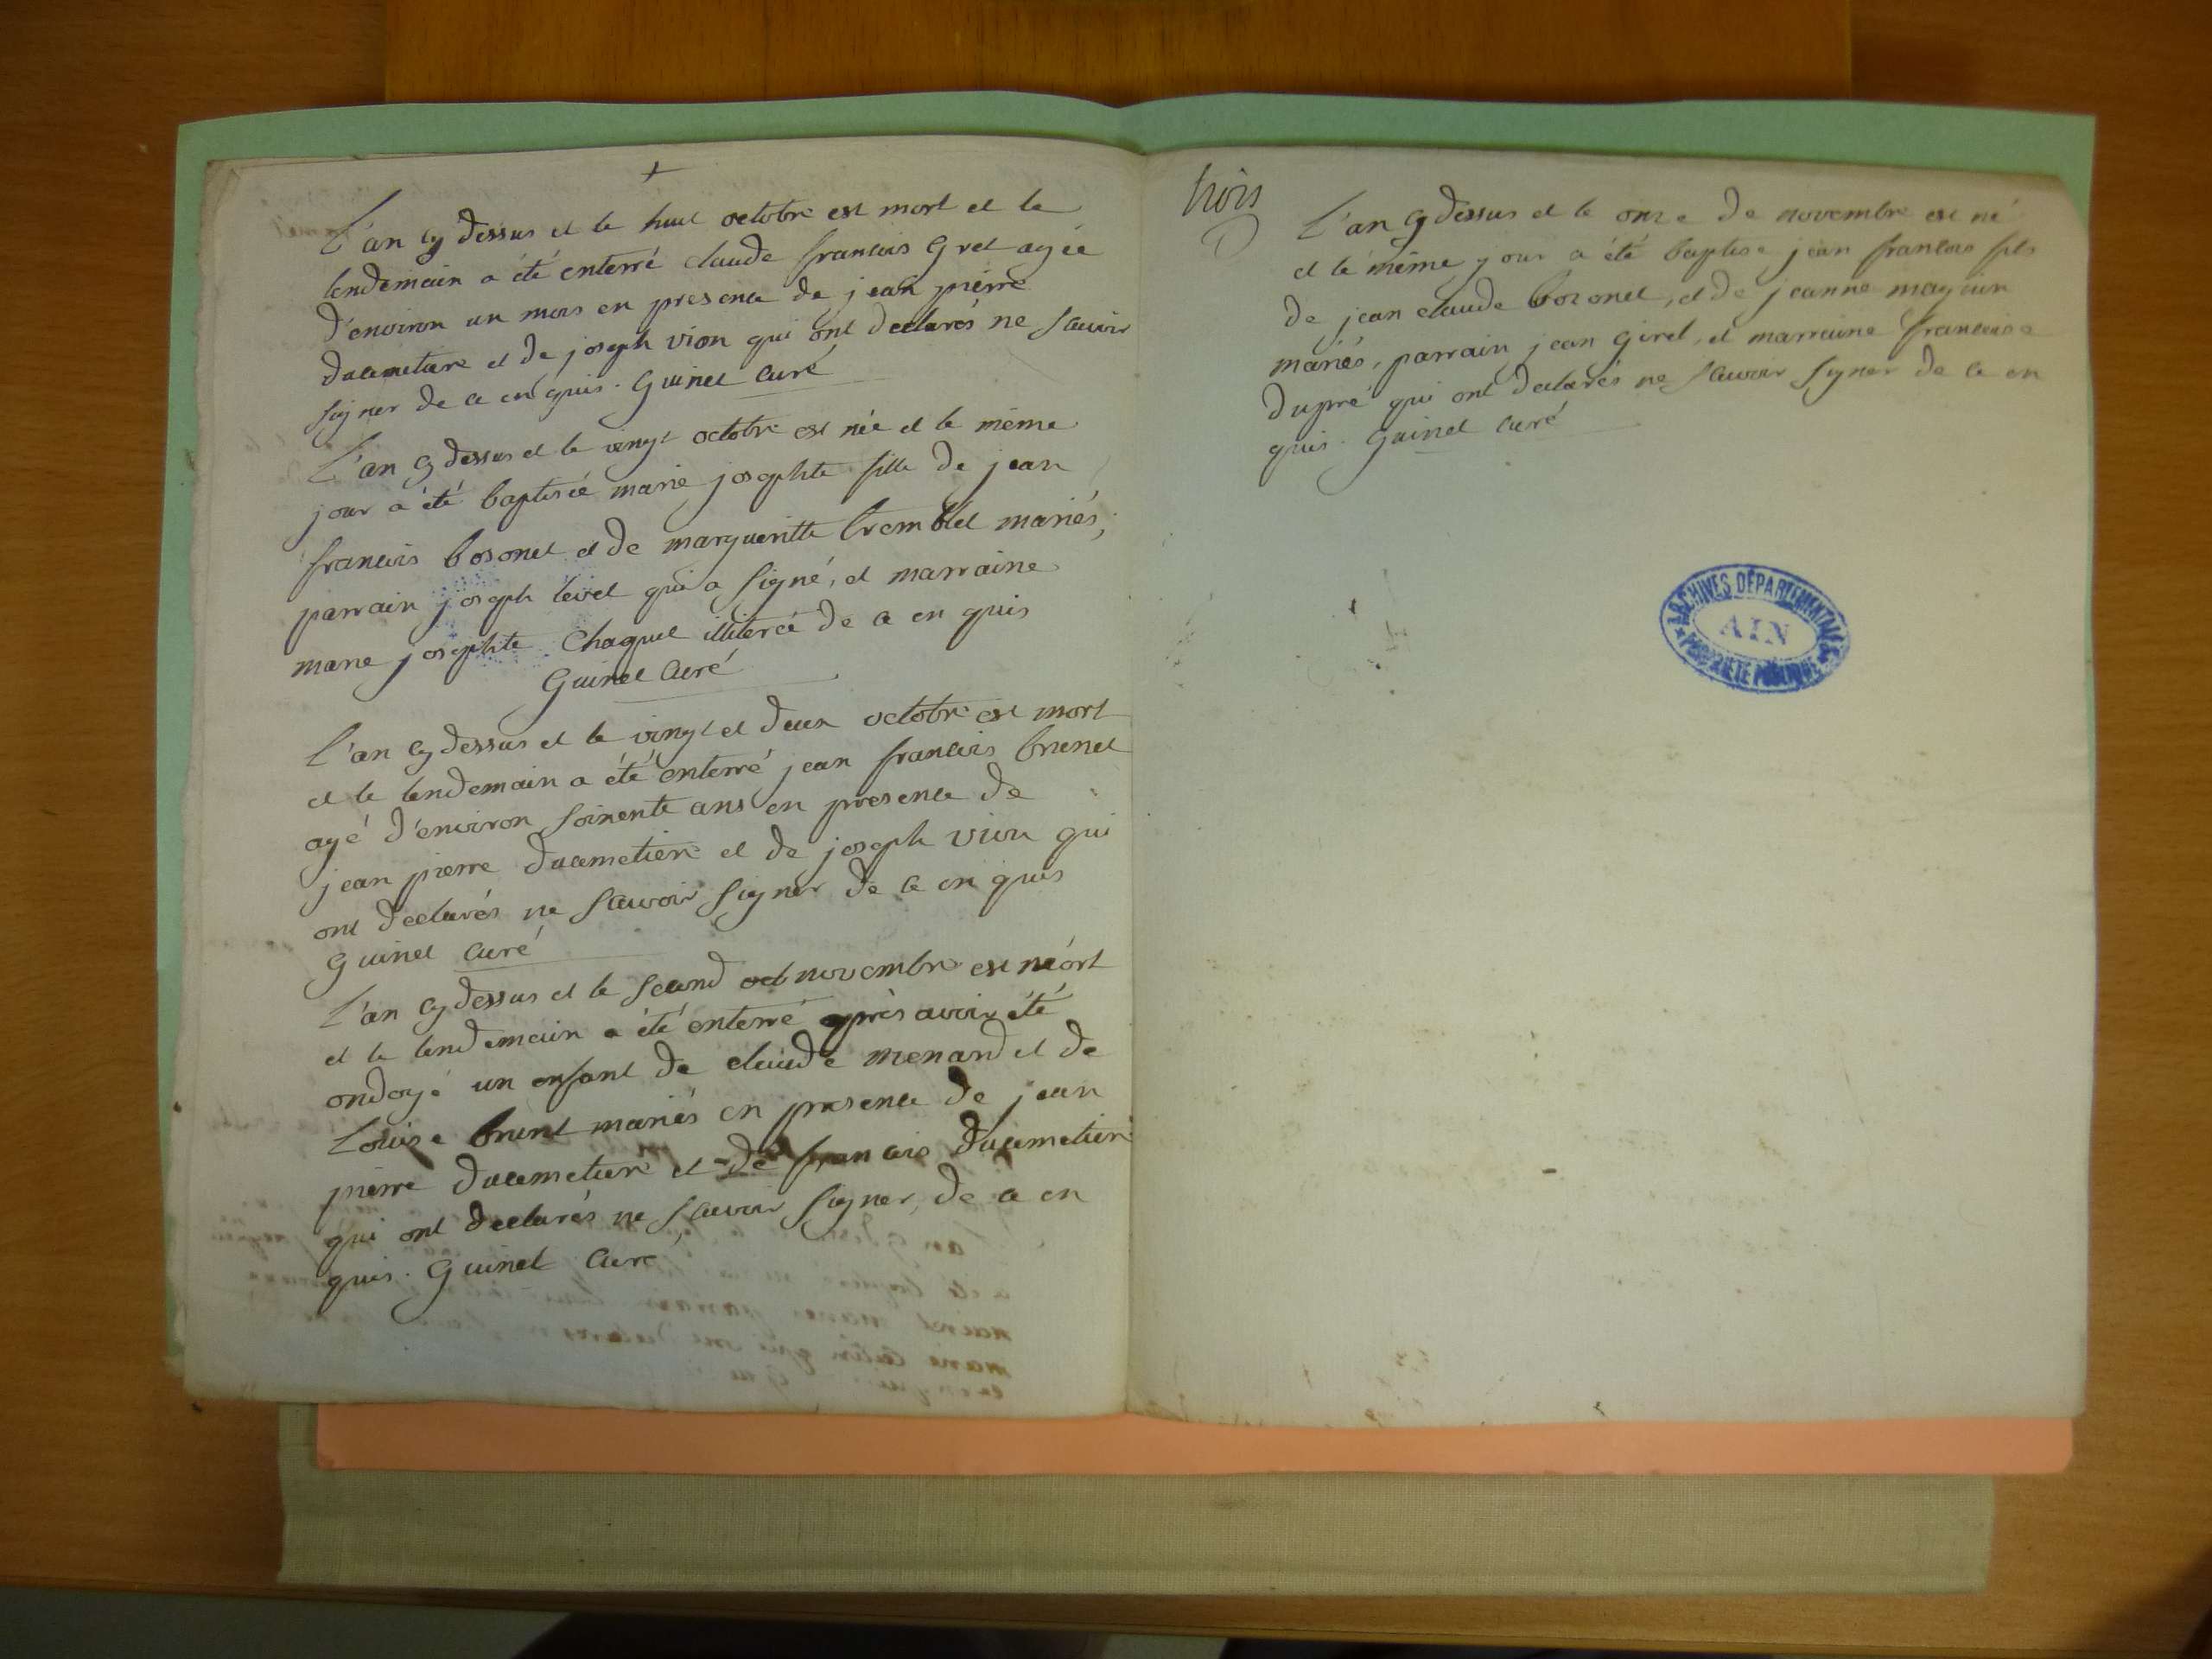 L'an cy dessus et le huit octobre est mort et le
lendemain a été enterré claude francois Gret agée
d'environ un mois en presence de jean pierre
ducimetiere et de joseph vion qui ont declarés ne scavoir
signer de ce en quis. Guinet curé
L'an cy dessus et le vingt octobre est née et le même
jour a été baptisée marie josephte fille de jean
francois bosonet et de margueritte tremblet mariés,
parrain joseph levet qui a signé, et marraine
marie josephte Chaquet illiterée de ce en quis
Guinet curé
L'an cy dessus et le vingt et deux octobre est mort
et le lendemain a été enterré jean francois brunet
agé d'environ soixente ans en presence de
jean pierre ducemetiere et de joseph vion qui
ont declarés ne scavoir signer de ce en quis
Guinet curé
L'an cy dessus et le second oct novembre est mort
et le lendemain a été enterré après avoir été
ondoyé un enfant de claude menard et de
Louise brunt mariés en presence de jean
pierre ducemetiere et de francois ducemetiere
qui ont declarés ne scavoir signer, de ce en
quis. Guinet curé
trois
L'an cy dessus et le onze de novembre est né
et le même jour a été baptise jean francois fils
de jean claude bozonet, et de jeanne maguin
mariés, parrain jean Giret, et marraine francoise
dupré qui ont declarés ne scavoir signer de ce en
quis. Guinet curé
ARCHIVES DÉPARTEMENTALES
AIN
PROPRIÉTÉ PUBLIQUE